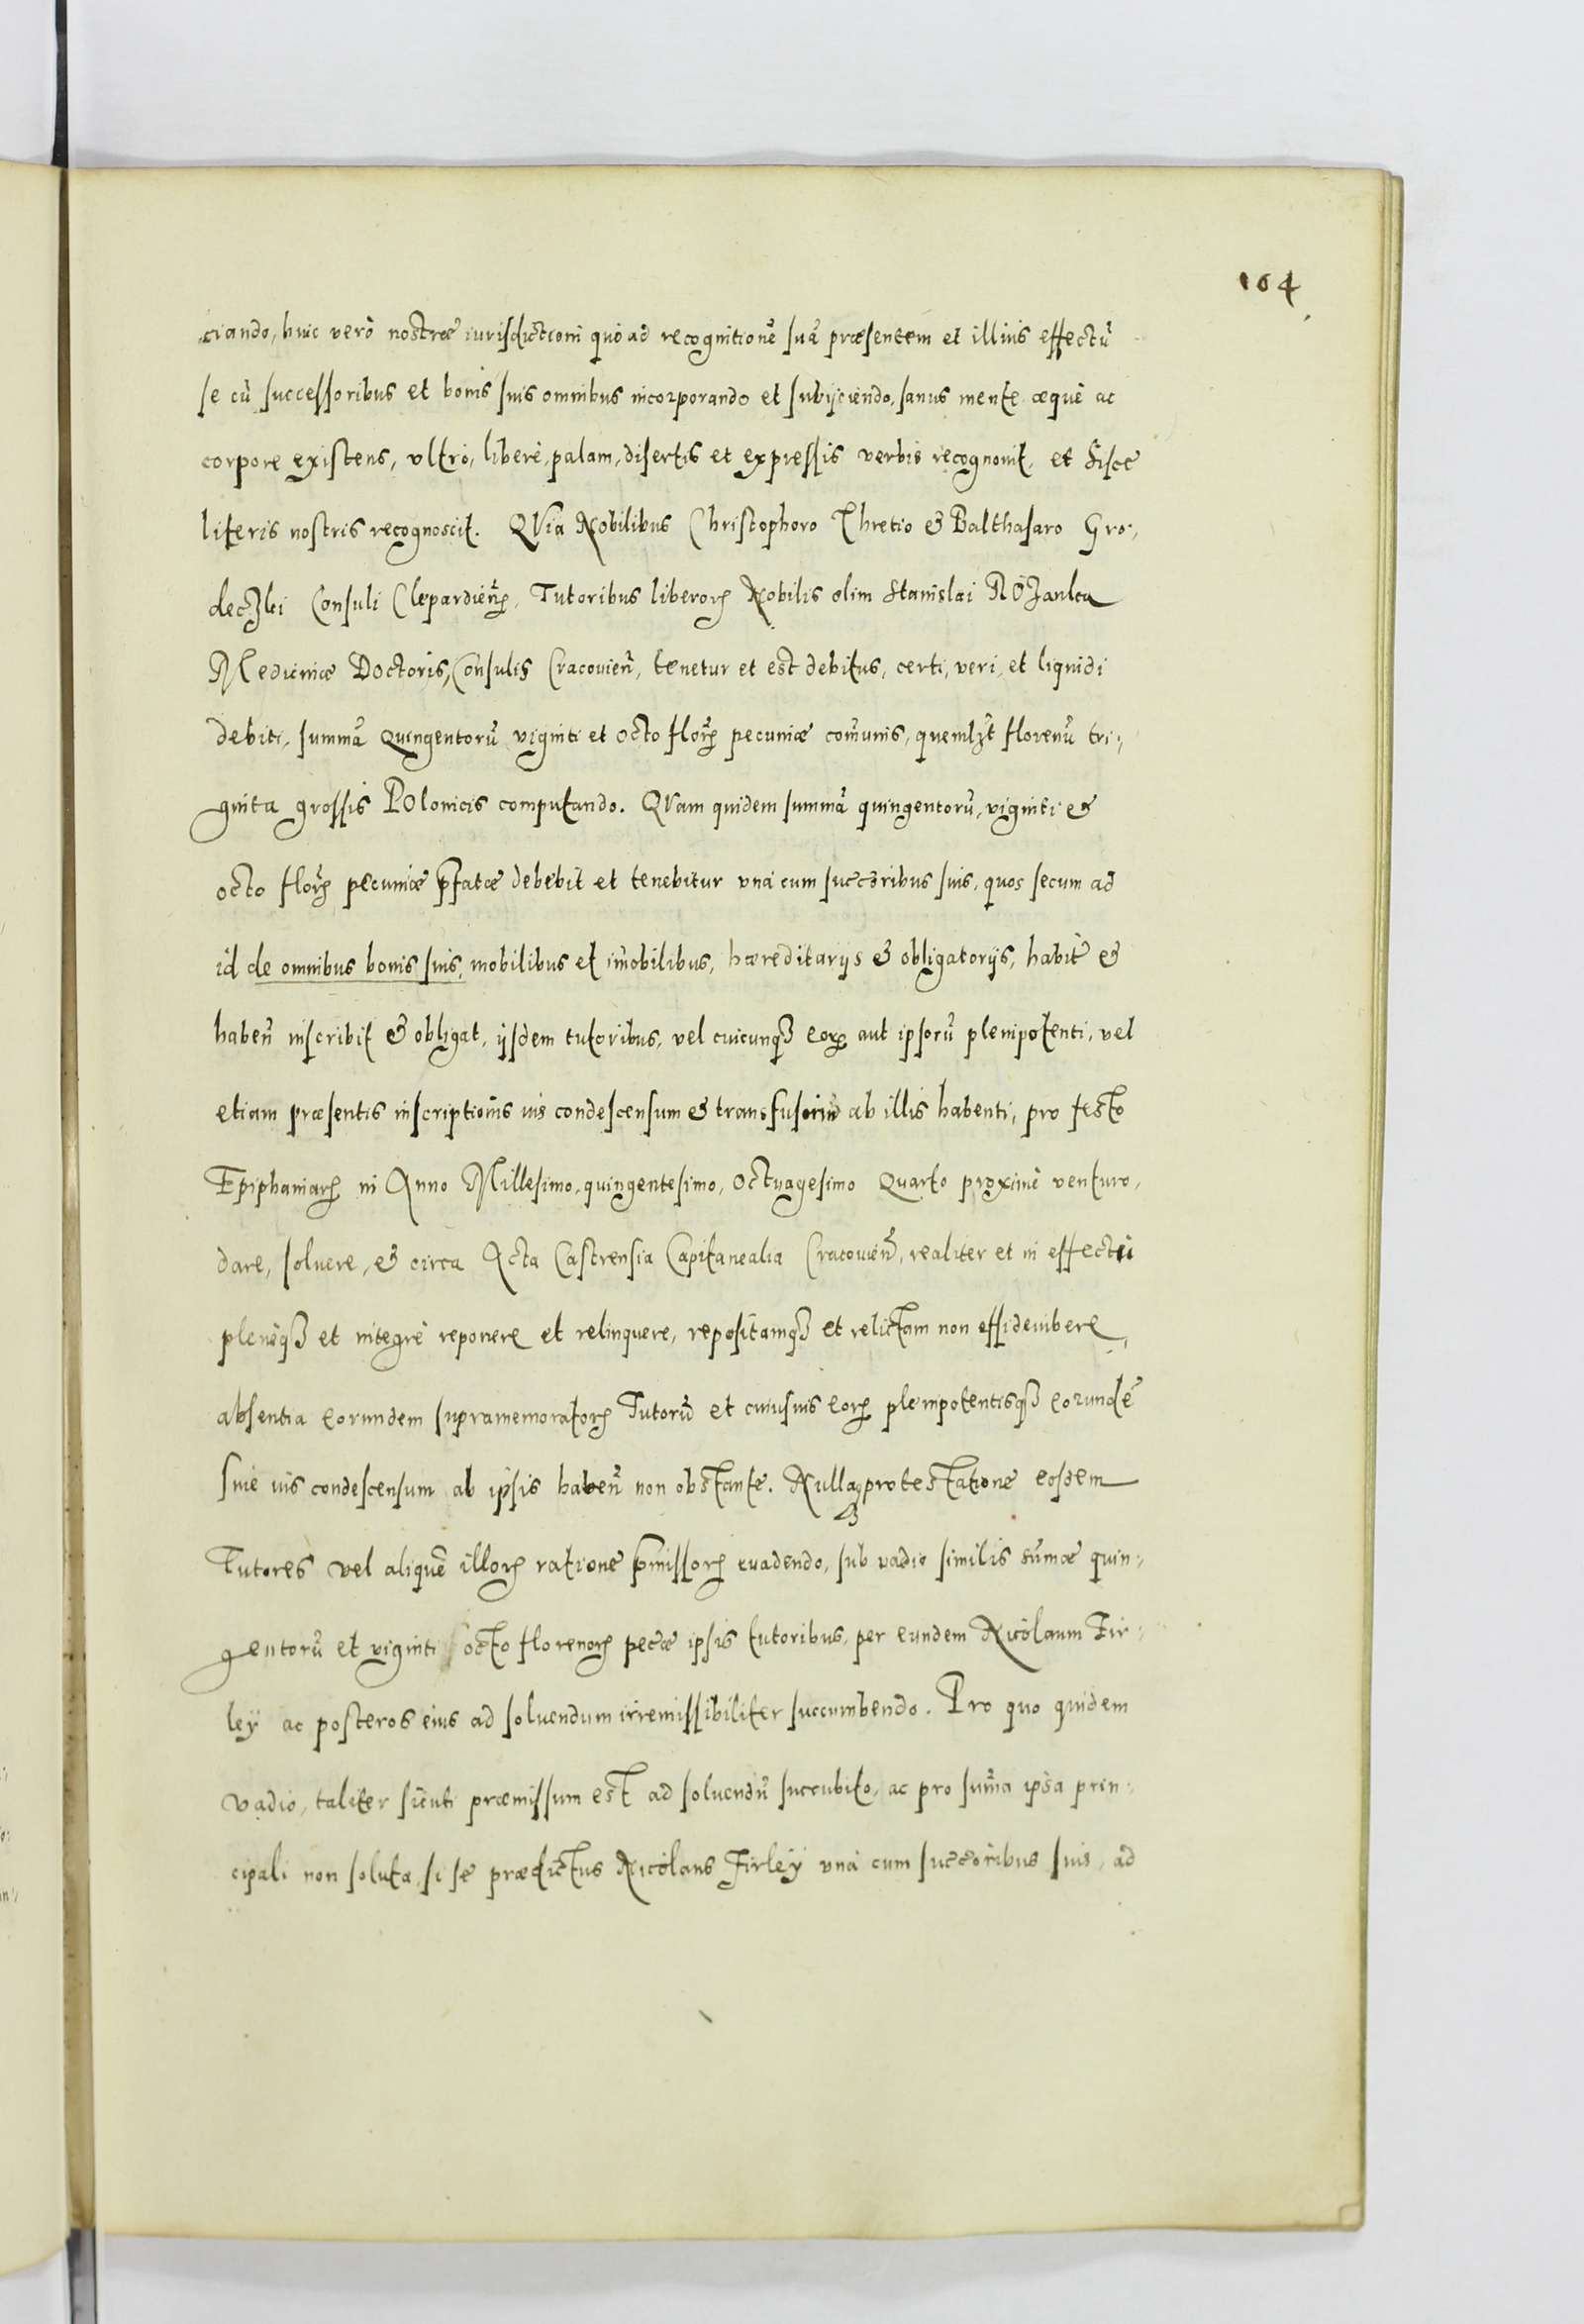 164
ciando, huic verò nostræ iurisdictioni quò ad recognitionē suā præsentem et illius effectū
se cū successoribus et bonis suis omnibus incorporando et subijciendo, sanus mente æquè ac
corpore existens, ultrò, liberè, palam, disertis et expressis verbis recognovit, et hisce
literis nostris recognoscit. QVia Nobilibus Christophoro Thretio & Balthasaro Gro-
Consuli Clepardien̄, Tutoribus liberorꝝ Nobilis olim Stanislai ROZanka
Medicinæ Doctoris, Consulis Cracovien̄, tenetur et est debitus, certi, veri, et liquidi
debiti, summā Quingentorū viginti et octo florꝝ pecuniæ com̄unis, quemlꝫt florenū tri-
ginta grossis POlonicis computando. QVam quidem summā quingentorū, viginti &
octo florꝝ pecuniæ p̄fatæ debebit et tenebitur unà cum succōribus suis, quos secum ad
id de omnibus bonis suis, mobilibus et im̄obilibus, hæreditarijs & obligatorijs, habit̄ &
haben̄ inscribit & obligat, ijsdem tutoribus, vel cuicunqꝫ eorꝝ aut ipsorū plenipotenti, vel
etiam præsentis inscriptionis ius condescensum & transfusum ab illis habenti, pro festo
Epiphaniarꝝ in Anno Millesimo, quingentesimo, Octuagesimo Quarto proximè venturo,
dare, solvere, & circa Acta Castrensia Capitanealia Cracovien̄, realiter et in effectu
plenèqꝫ et integrè reponere et relinquere, repositamqꝫ et relictam non
absentia eorundem supramemoratorꝝ Tutorū et cuiusvis eorꝝ plenipotentisqꝫ eorundē
sive ius condescensum ab ipsis haben̄ non obstante. Nullaqꝫ protestatione eosdem
Tutores vel aliquē illorꝝ ratione p̄missorꝝ evadendo, sub vadio similis sūmæ quin-
gentorū et viginti octo florenorꝝ pecc̄æ ipsis tutoribus, per eundem Nicolaum Fir-
leÿ ac posteros eius ad solvendum irremissibiliter succumbendo. Pro quo quidem
vadio, taliter sicuti præmissum est ad solvendū succubito, ac pro sum̄a ipsa prin-
cipali non soluta, si se prædictus Nicolaus Firleÿ unà cum succōribus suis, ad